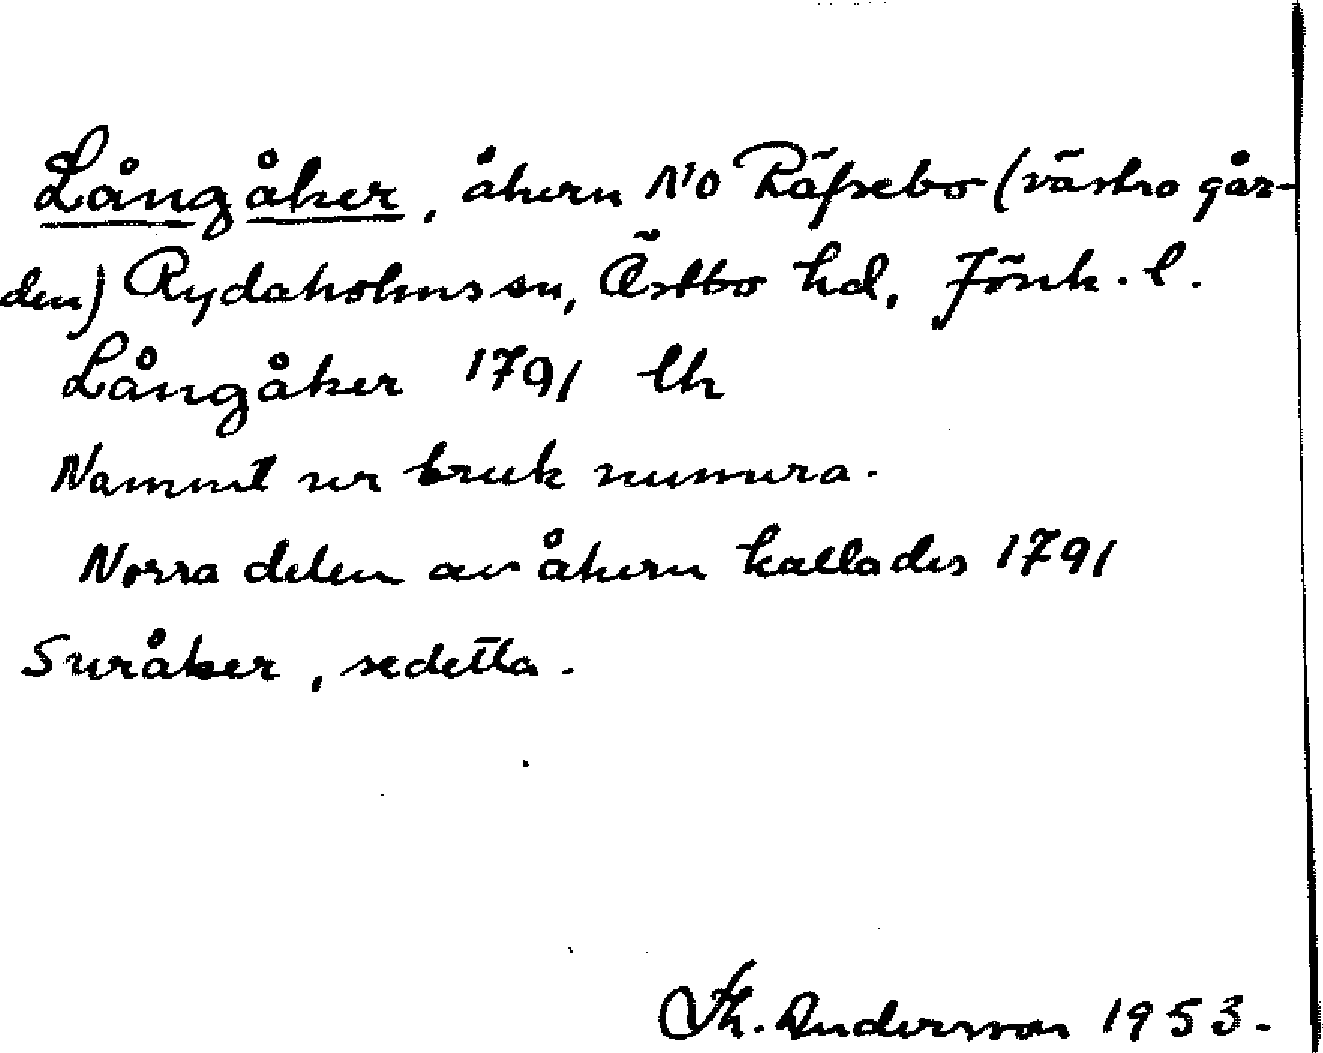 Långåker, åkern NO Räfsebo (västra går-
den) Rydaholms sn, Östbo hd, Jönk. l.
Långåker 1791 lh
Namnet ur bruk numera.
Norra delen av åkern kallades 1791
Suråker, sedetta.
Th. Andersson 1953.